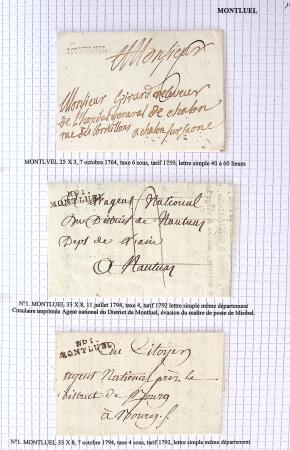 MONTLUEL
MONTLUEL
A Monsieur
Monsieur Girard receveur
de L'hopital general de chalon
rue des Cordeliers a chalon sur saone
MONTLVEL 25 X 3, 7 octobre 1764, taxe 6 sous, tarif 1759, lettre simple 40 à 60 lieues
No 1.
MONTLUEL
L'agent National
Du District de Nantua
Dept de L'ain
A Nantua
N°1. MONTLUEL 33 X 8, 11 juillet 1794, taxe 4, tarif 1792 lettre simple même département
Circulaire imprimée Agent national du District de Montluel, évasion du maître de poste de Miribel.
No 1.
MONTLUEL
Au Citoyen
agent National près le
district de Bourg
à Bourg
N°1. MONTLUEL 33 X 8, 7 octobre 1794, taxe 4 sous, tarif 1792, lettre simple même département.